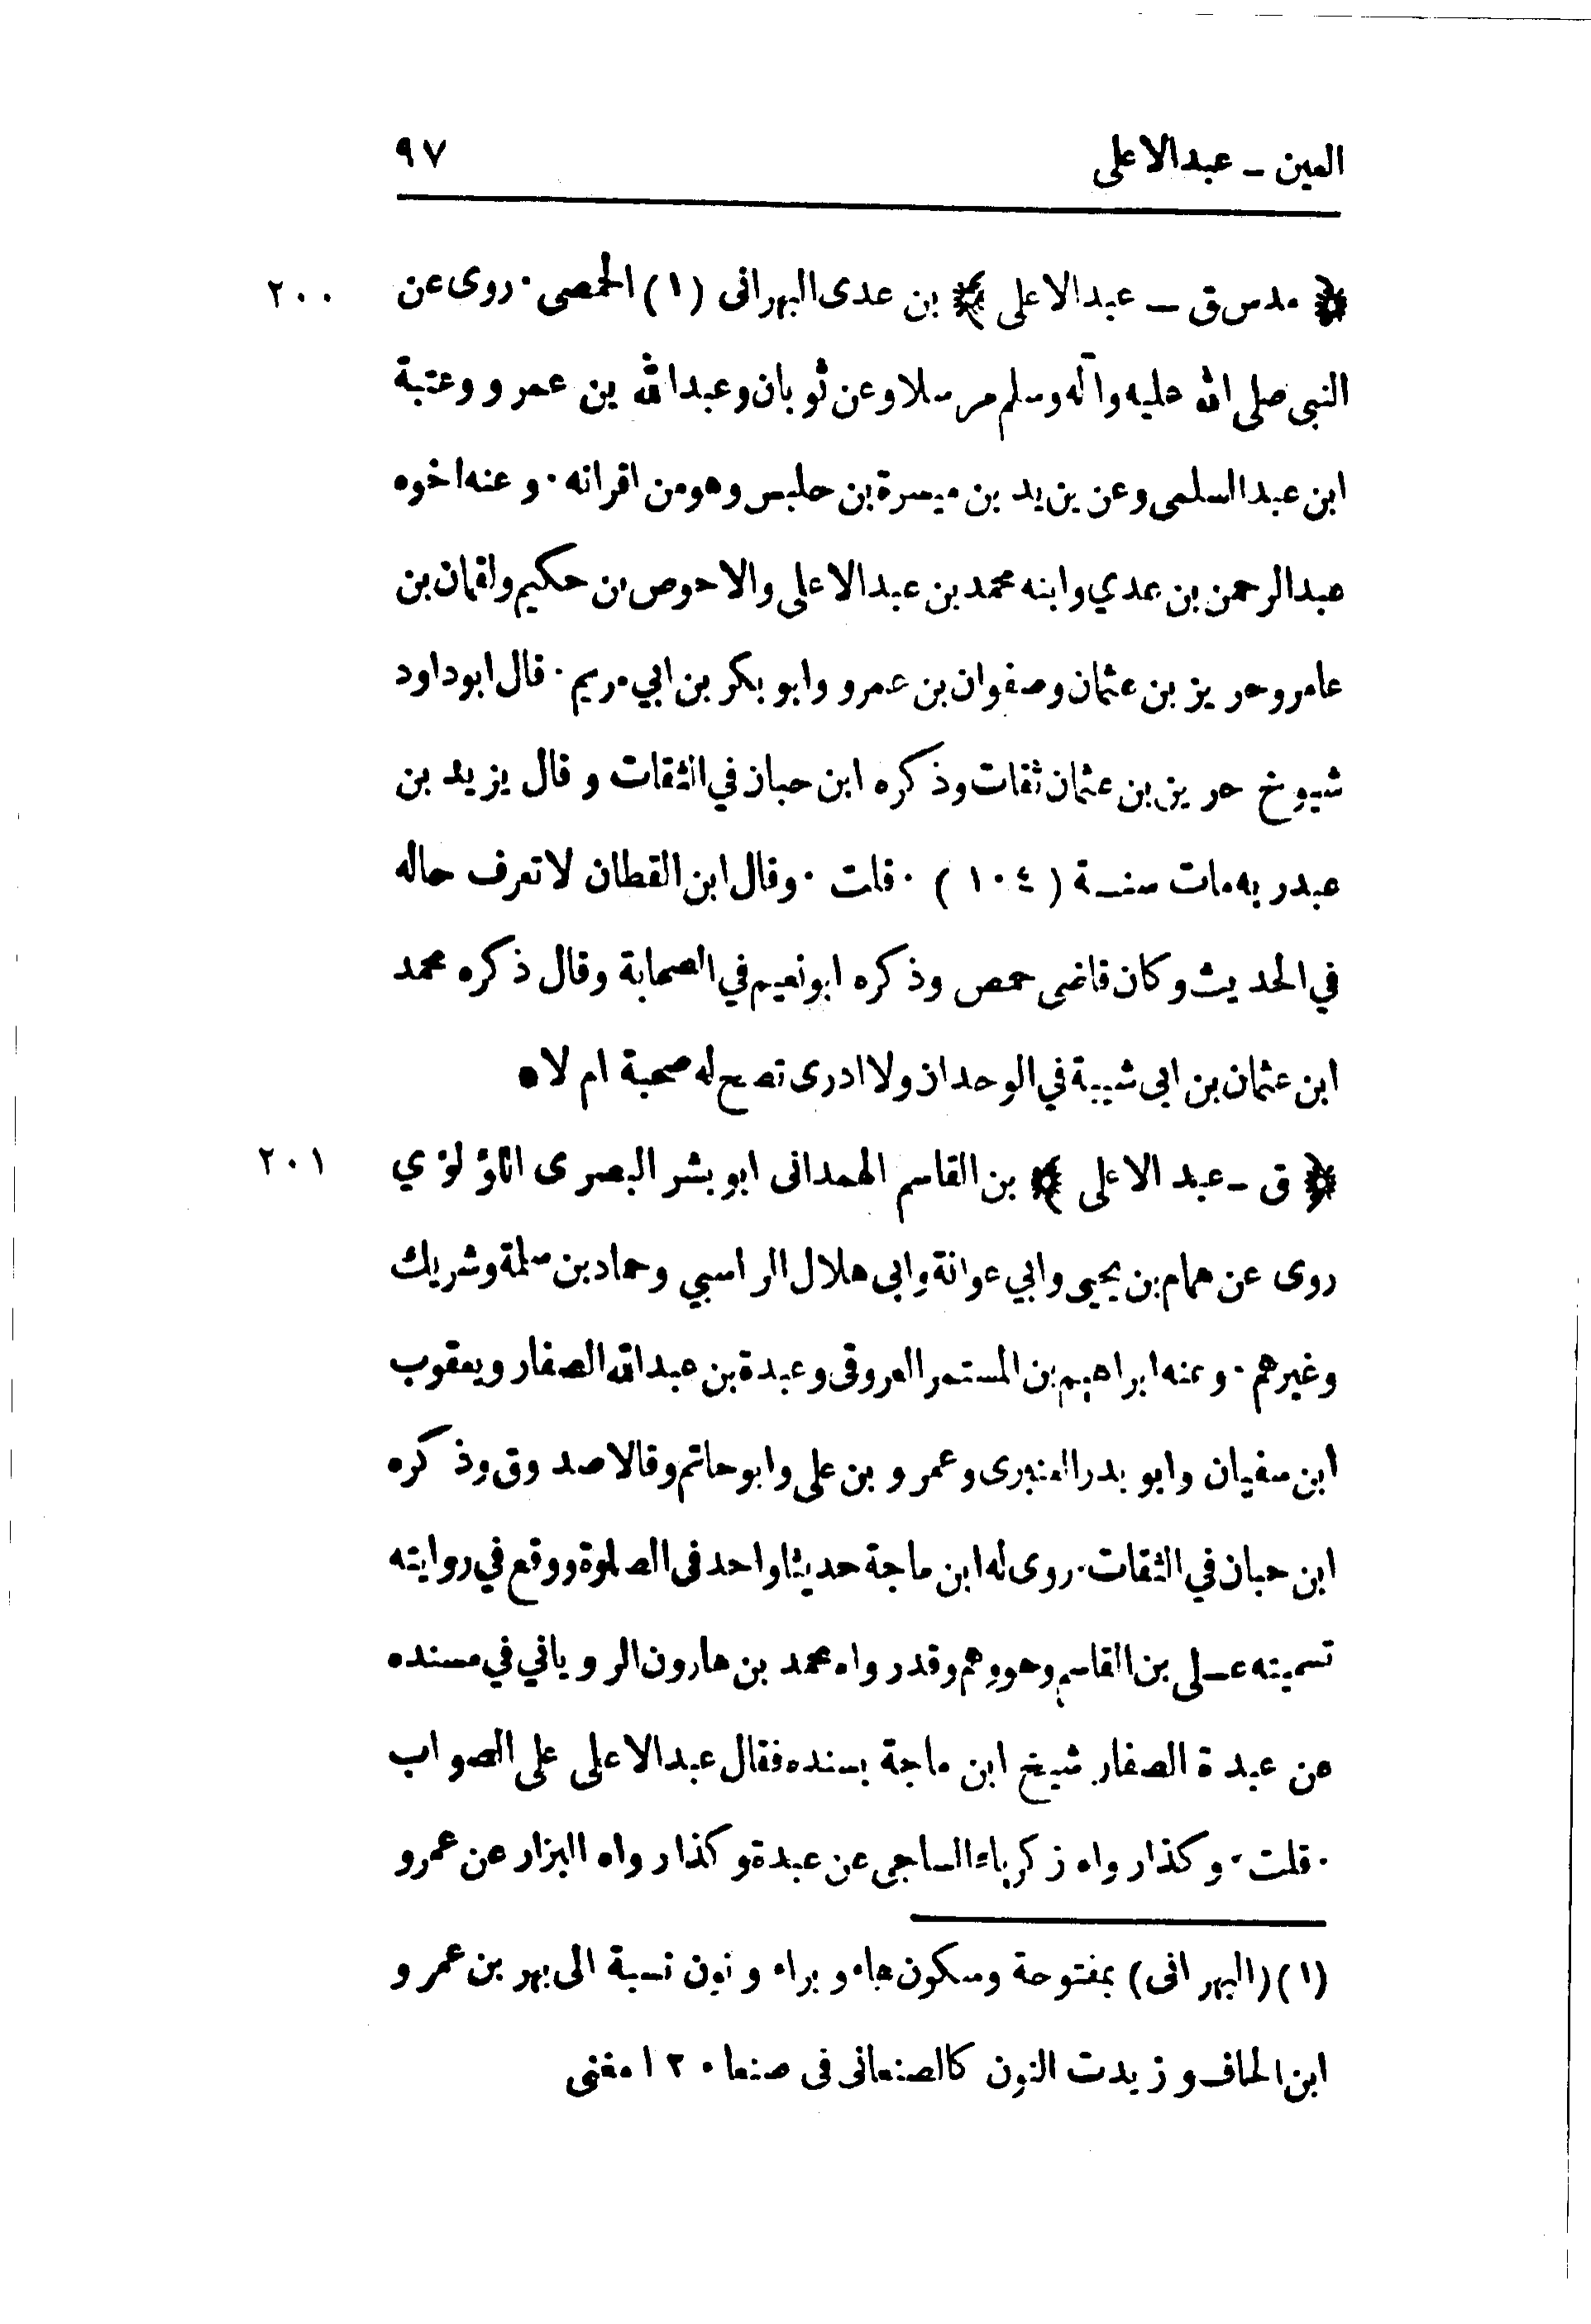 العين – عبدالاعلى ٩٧
﴿ مد س ق – عبدالاعلى ﴾ بن عدى البهرانى (١) الحمصى · روى عن ٢٠٠
النبى صلى الله عليه وآله وسلم مرسلا وعن ثوبان وعبدالله بن عمرو وعتبة
ابن عبد السلمى وعن يزيد بن ميسرة بن حلبس وهو من اقرانه · وعنه اخوه
عبدالرحمن بن عدي وابنه محمد بن عبدالاعلى والاحوص بن حكيم ولقمان بن
عامر وحريز بن عثمان وصفوان بن عمرو وابو بكر بن ابي مريم · قال ابوداود
شيوخ حريز بن عثمان ثقات وذكره ابن حبان في الثقات وقال يزيد بن
عبدربه مات سنة (١٠٤) · قلت · وقال ابن القطان لا تعرف حاله
في الحديث وكان قاضى حمص وذكره ابونعيم في الصحابة وقال ذكره محمد
ابن عثمان بن ابى شيبة في الوحدان ولا ادرى تصح له صحبة ام لا ●
﴿ ق – عبد الاعلى ﴾ بن القاسم الهمدانى ابو بشر البصرى اللؤلؤي ٢٠١
روى عن همام بن يحيى وابي عوانة وابى هلال الراسبي وحماد بن سلمة وشريك
وغيرهم · وعنه ابراهيم بن المستمر العروقى وعبدة بن عبدالله الصفار ويعقوب
ابن سفيان وابو بدر العنبرى وعمرو بن على وابوحاتم وقالا صدوق وذكره
ابن حبان في الثقات · روى له ابن ماجة حديثا واحد فى الصلوة ووقع في روايته
تسميته على بن القاسم وهو وهم وقدرواه محمد بن هارون الروياني في مسنده
عن عبدة الصفار شيخ ابن ماجة بسنده فقال عبدالاعلى على الصواب
· قلت · وكذا رواه زكرياء الساجى عن عبدة وكذا رواه البزار عن عمرو
(١) (البهرانى) بمفتوحة وسكون هاء وبراء ونون نسبة الى بهر بن عمرو
ابن الحاف وزيدت النون كالصنعانى فى صنعاء ١٢ مغنى